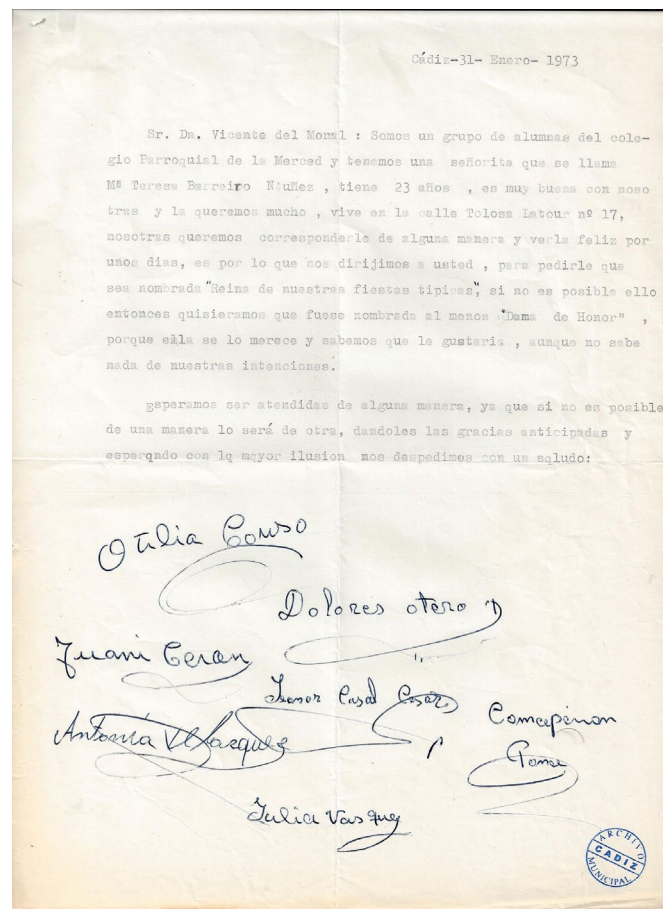 Cádiz-31- Enero- 1973
Sr. Dn. Vicente del Moral : Somos un grupo de alumnas del cole-
gio Parroquial de la Merced y tenemos una señorita que se llama
Mª Teresa Barreiro Núñez , tiene 23 años , es muy buena con noso
tras y la queremos mucho , vive en la calle Tolosa Latour nº 17,
nosotras queremos corresponderle de alguna manera y verla feliz por
unos dias, es por lo que nos dirijimos a usted , para pedirle que
sea nombrada "Reina de nuestras fiestas tipicas", si no es posible ello
entonces quisieramos que fuese nombrada al menos "Dama de Honor" ,
porque ella se lo merece y sabemos que le gustaria , aunque no sabe
nada de nuestras intenciones.
Esperamos ser atendidas de alguna manera, ya que si no es posible
de una manera lo será de otra, dandoles las gracias anticipadas y
esperqndo con lq mqyor ilusion nos despedimos con un sqludo:
Otilia Couso
Dolores otero
Juani Ceran
Casal
Antonia Velazquez
Concepcion
Julia Vasquez
ARCHIVO
CADIZ
MUNICIPAL